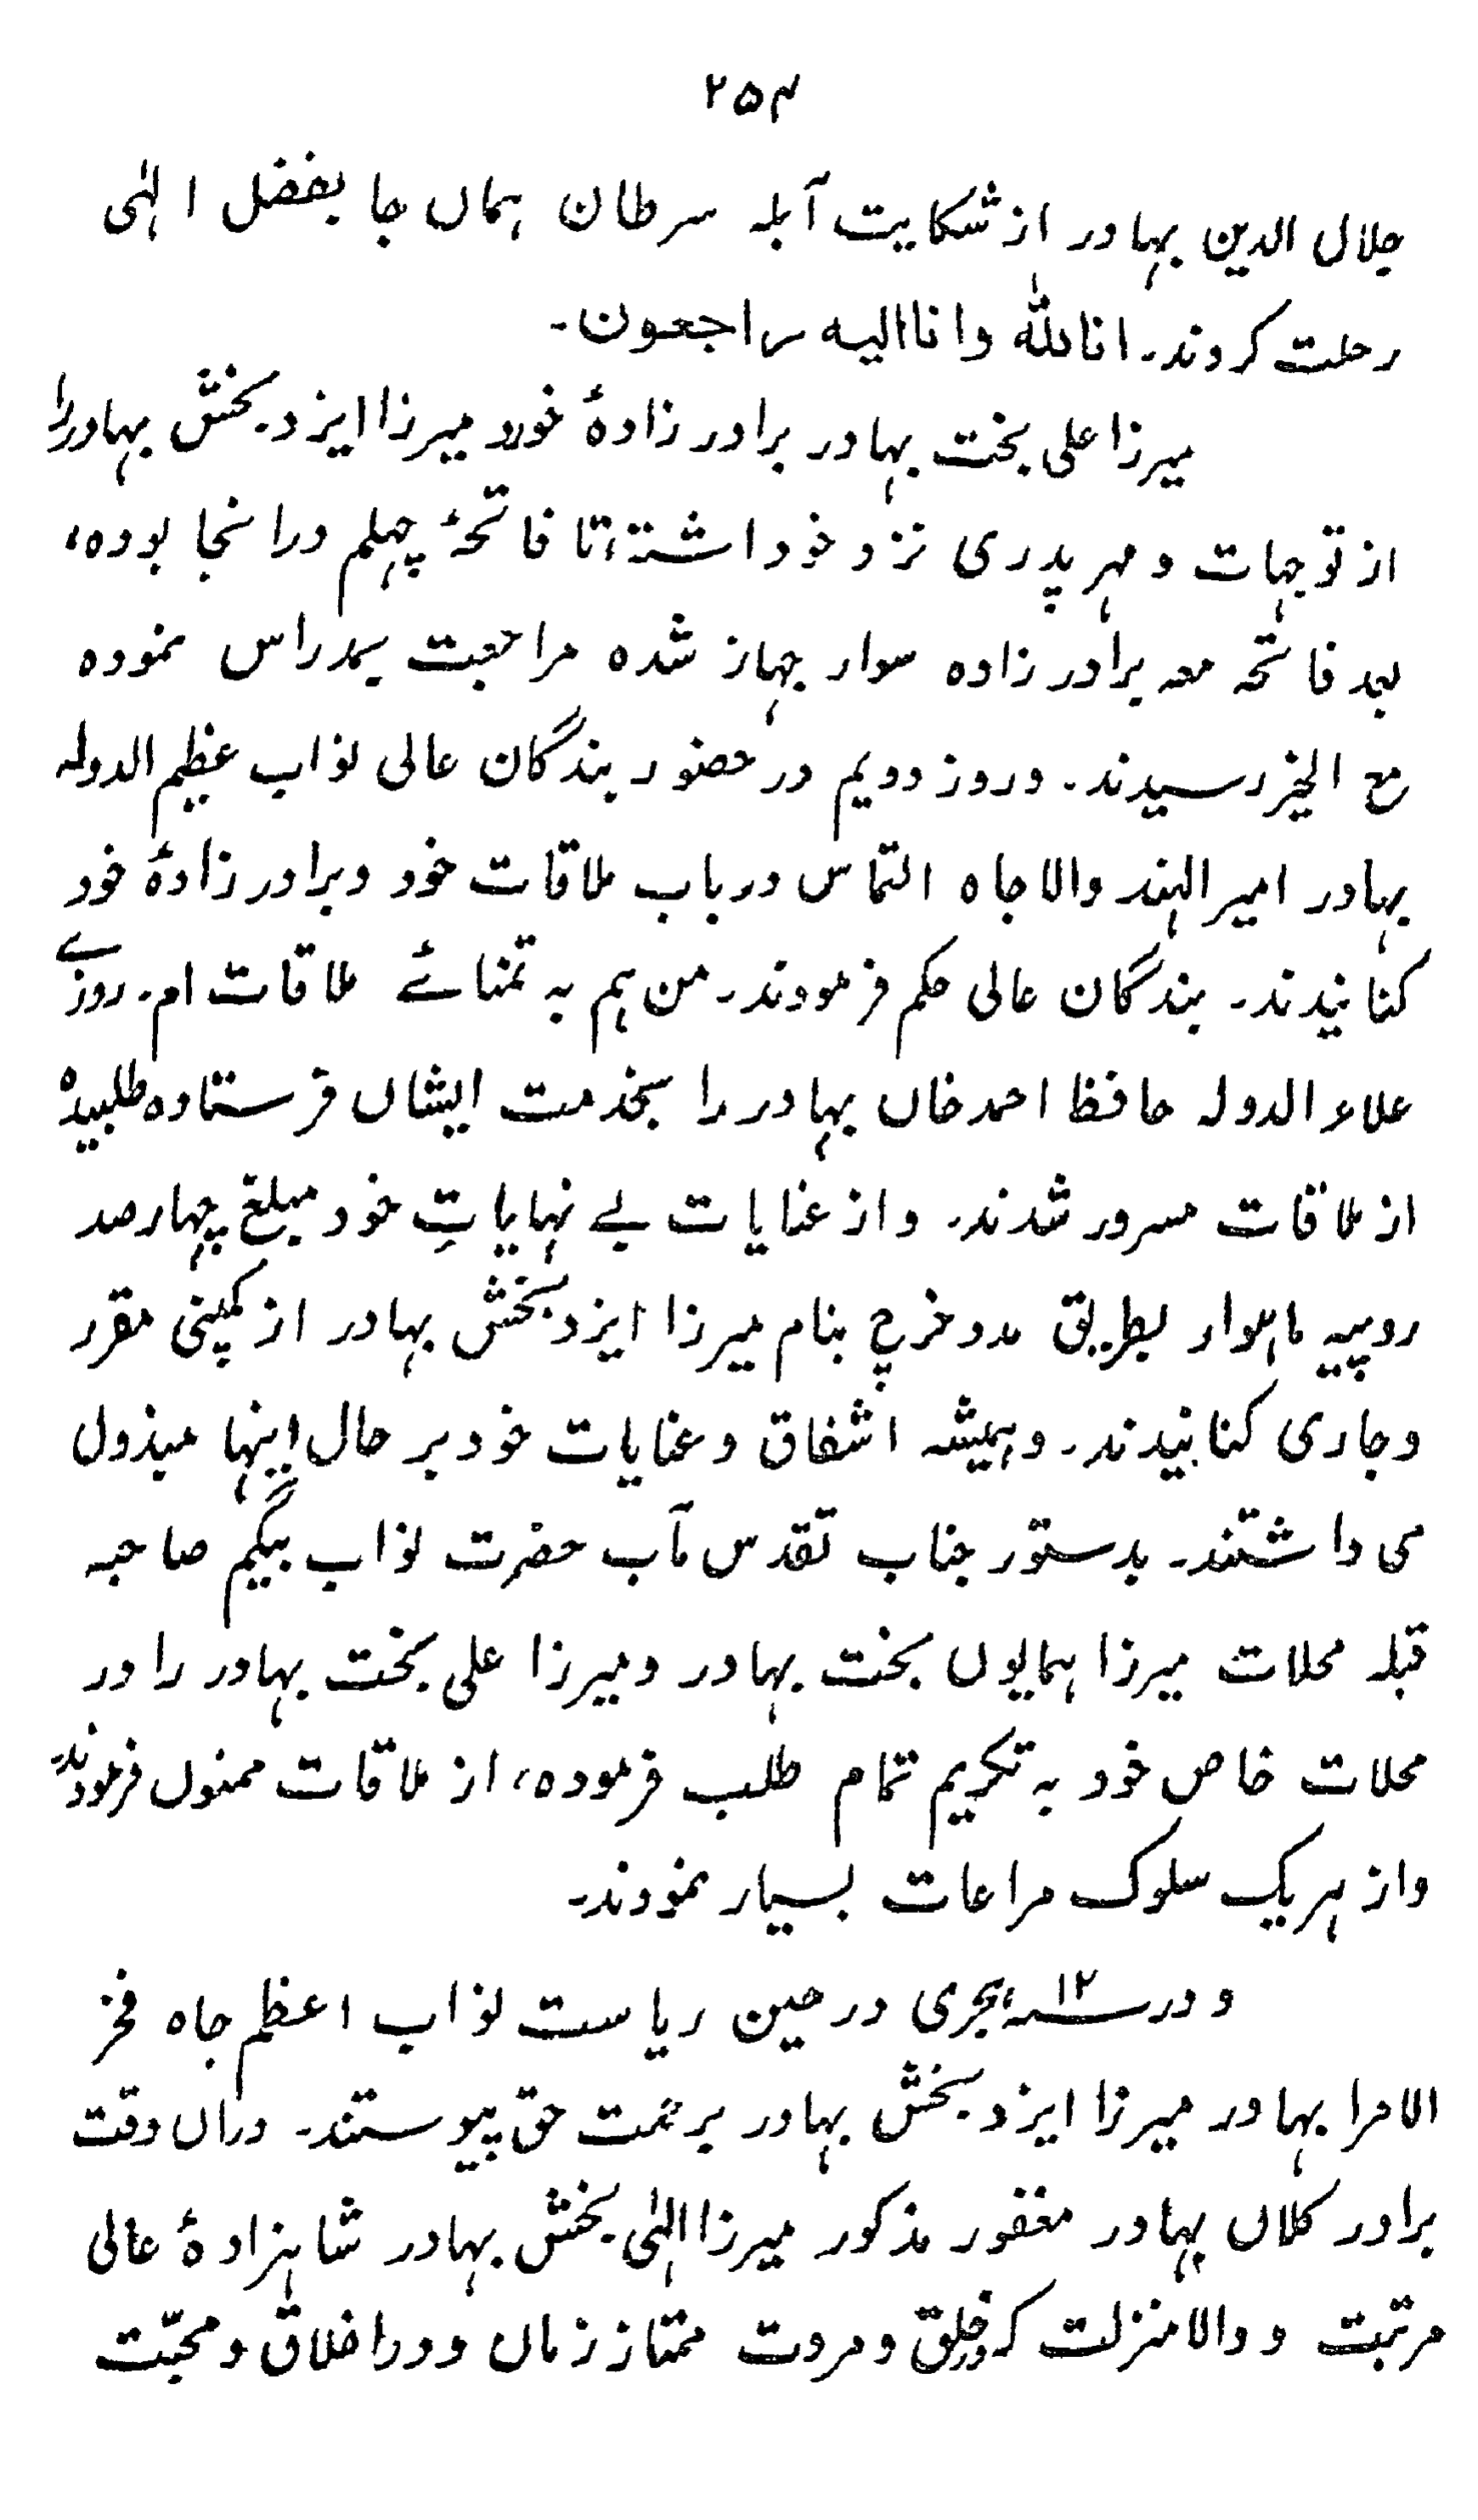 ۲۵۴
جلال الدین بہادر از شکایت آبلہ سرطان ہماں جا بفضل الہٰی
رحلت کردند۔ انا للہ وانا الیہ راجعون۔
میرزا علی بخت بہادر برادر زادۂ خورد میرزا ایزد بخش بہادر را
از توجہات و مہر پدری نزد خود اشتہ تا فاتحۂ چہلم در انجا بودہ،
بعد فاتحہ معہ برادر زادہ سوار جہاز شدہ مراجعت بمدراس نمودہ
مع الخیر رسیدند۔ وروز دویم در حضور بندگان عالی نواب عظیم الدولہ
بہادر امیر الہند والا جاہ التماس در باب ملاقات خود و برادر زادۂ خود
کنانیدند۔ بندگان عالی حکم فرمودند۔ من ہم بہ تمنائے ملاقات ام۔ روزے
علاء الدولہ حافظ احمد خاں بہادر را بخدمت ایشاں فرستادہ طلبیدہ
از ملاقات مسرور شدند۔ و از عنایات بے نہایاتِ خود مبلغ چہار صد
روپیہ ماہوار بطریق مدد خرچ بنام میرزا ایزد بخش بہادر از کمپنی مقرر
و جاری کنانیدند۔ و ہمیشہ اشفاق و عنایات خود بر حال اینہا مبذول
می داشتند۔ بدستور جناب تقدس مآب حضرت نواب بیگم صاحبہ
قبلہ محلات میرزا ہمایوں بخت بہادر و میرزا علی بخت بہادر را در
محلات خاص خود بہ تکریم تمام طلب فرمودہ، از ملاقات ممنون فرمودند
و از ہریک سلوک مراعات بسیار نمودند۔
و در ۱۲ سنہ ہجری در حین ریاست نواب اعظم جاہ فخر
الامرا بہادر میرزا ایزد بخش بہادر برحمت حق پیوستند۔ دراں وقت
برادر کلاں بہادر مغفور مذکور میرزا الہٰی بخش بہادر شاہزادۂ عالی
مرتبت و والا منزلت کہ در خلق و مروت ممتاز زماں و در اخلاق و محبّت